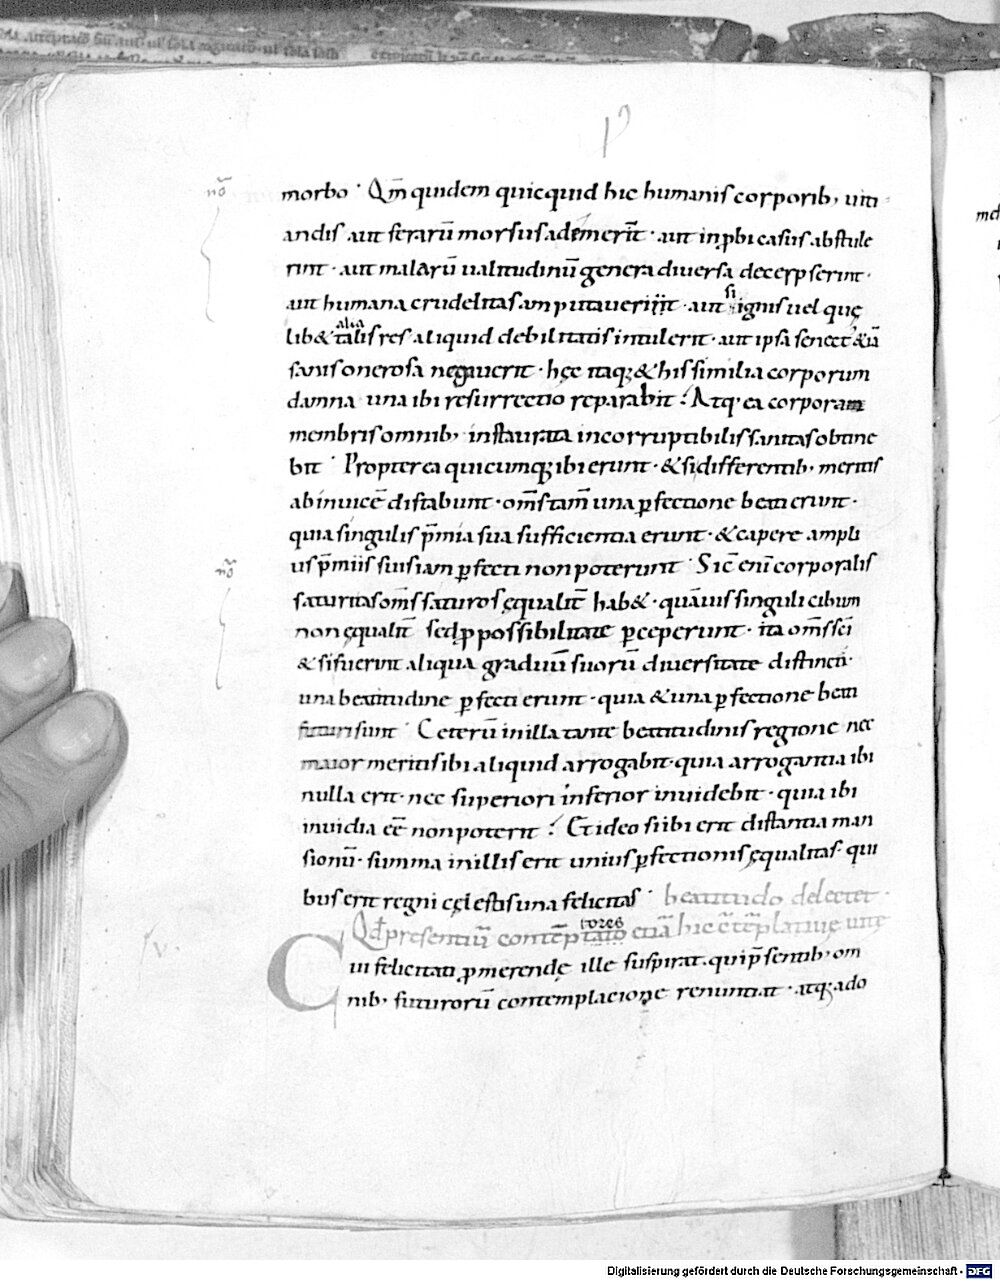 morbo · Qm̄ quidem quicquid hic humanis corporib; uiti
andis aut ferarū morsus ademerit̄ · aut inp̱bi casus abstule
rint · aut malarū ualitudinū genera diuersa decerpserint ·
aut humana crudelitas amputauerint · aut si ignis uel quę
lib& alia talis res aliquid debilitatis intulerit · aut ipsa senect' &iā
sanis onerosa negauerit · hęc itaq; & his similia corporum
damna una ibi resurrectio reparabit : Atq; ea corpora
membris omnib; instaurata incorruptibilis sanitas obtine
bit · Propterea quicumq; ibi erunt · & si differentib; meritis
ab inuicē distabunt · om̄s tam̄ una p̱fectione beati erunt ·
quia singulis p̄mia sua sufficientia erunt · & capere ampli
us p̄miis suis iam p̱fecti non poterunt · Sic̄ eni corporalis
saturitas om̄s saturos ęqualit̄ hab& · quāuis singuli cibum
non ęqualit̄ sed ꝓ possibilitate p̱ceperunt · ita om̄s sc̄i
& si fuerint aliqua graduū suorū diuersitate distincti ·
una beatitudine p̱fecti erunt · quia & una p̱fectione beati
futuri sunt · Ceterū in illa tante beatitudinis regione nec
maior meriti sibi aliquid arrogabit · quia arrogantia ibi
nulla erit · nec superiori inferior inuidebit · quia ibi
inuidia eē non poterit : Et ideo si ibi erit distantia man
sionū · summa in illis erit unius p̱fectionis ęqualitas · qui
bus erit regni cęlestis una felicitas · beatitudo delectet ·
Qd̄ presentiū contēptores etiā hic c̄tēplatiuę uitę
Cui felicitati ꝓmerendę ille suspirat · qui p̄sentib; om
nib; futurorū contemplacione renuntiat · atq; ado
nō
nō
Digitalisierung gefördert durch die Deutsche Forschungsgemeinschaft - DFG